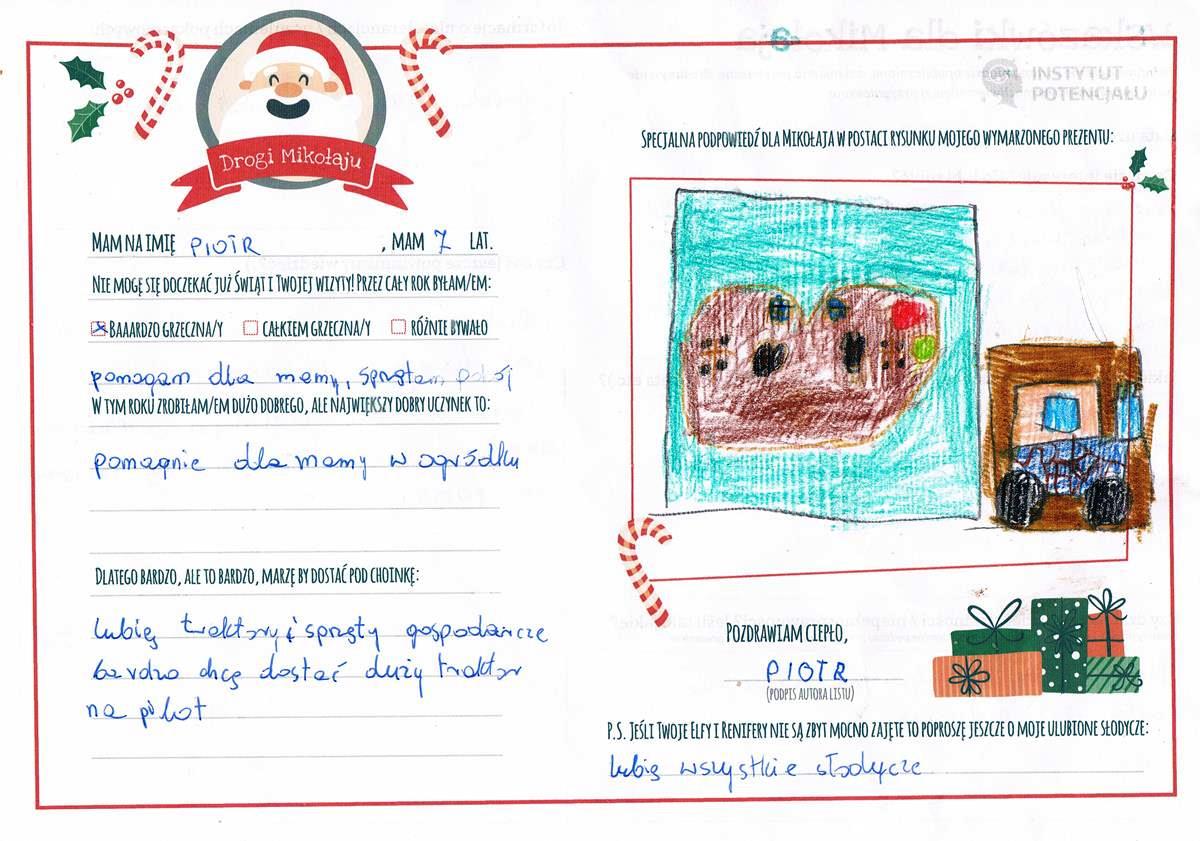 Drogi Mikołaju
MAM NA IMIĘ PIOTR, MAM 7 LAT.
NIE MOGĘ SIĘ DOCZEKAĆ JUŻ ŚWIĄT I TWOJEJ WIZYTY! PRZEZ CAŁY ROK BYŁAM/EM:
BAAARDZO GRZECZNA/Y CAŁKIEM GRZECZNA/Y RÓŻNIE BYWAŁO
pomagam dla mamy, sprzątam pokój
W TYM ROKU ZROBIŁAM/EM DUŻO DOBREGO, ALE NAJWIĘKSZY DOBRY UCZYNEK TO:
pomagnie dla mamy w ogródku
DLATEGO BARDZO, ALE TO BARDZO, MARZĘ BY DOSTAĆ POD CHOINKĘ:
lubię traktory i sprzęty gospodarcze
bardzo chcę dostać duży traktor
na pilot
INSTYTUT
POTENCJAŁU
SPECJALNA PODPOWIEDŹ DLA MIKOŁAJA W POSTACI RYSUNKU MOJEGO WYMARZONEGO PREZENTU:
POZDRAWIAM CIEPŁO,
PIOTR
(PODPIS AUTORA LISTU)
P.S. JEŚLI TWOJE ELFY I RENIFERY NIE SĄ ZBYT MOCNO ZAJĘTE TO POPROSZĘ JESZCZE O MOJE ULUBIONE SŁODYCZE:
lubię wszystkie słodycze